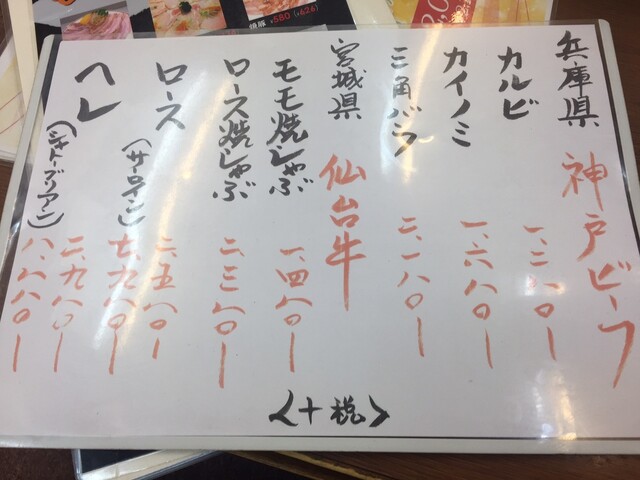 兵庫県 神戸ビーフ
カルビ 一、三八〇ー
カイノミ 一、六八〇ー
三角バラ 二、一八〇ー
宮城県 仙台牛
モモ焼しゃぶ 一、四八〇ー
ロース焼しゃぶ 二、三八〇ー
ロース 二、五八〇ー
(サーロイン) 七、九八〇ー
ヘレ 二、九八〇ー
(シャトーブリアン) 八、八八〇ー
<十税>
¥580 (¥626)